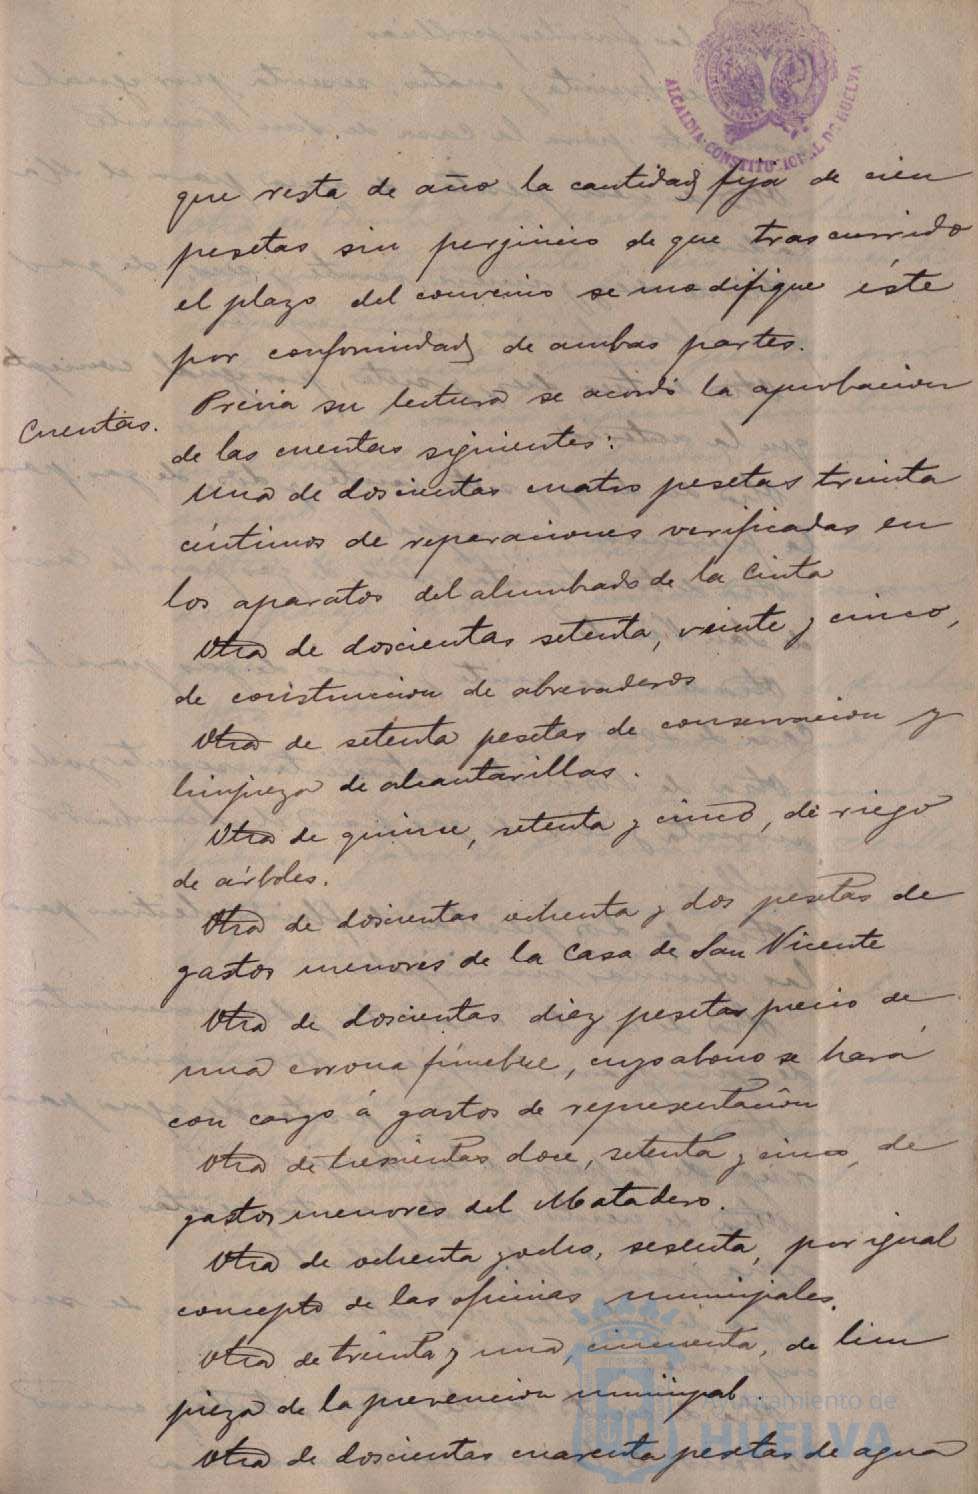 ALCALDIA CONSTITUCIONAL DE HUELVA
que resta de año la cantidad fija de cien
pesetas sin perjuicio de que trascurrido
el plazo del convenio se modifique éste
por conformidad de ambas partes.
Cuentas.
Previa su lectura se acordó la aprobacion
de las cuentas siguientes:
Una de doscientas cuatro pesetas treinta
céntimos de reparaciones verificadas en
los aparatos del alumbrado de la Cinta
Otra de doscientas setenta, veinte y cinco,
de construccion de abrevaderos
Otra de setenta pesetas de conservacion y
limpieza de alcantarillas.
Otra de quince, setenta y cinco, de riego
de árboles.
Otra de doscientas ochenta y dos pesetas de
gastos menores de la Casa de San Vicente
Otra de doscientas diez pesetas precio de
una corona fúnebre, cuyo abono se hará
con cargo á gastos de representación
Otra de trescientas doce, setenta y cinco, de
gastos menores del Matadero.
Otra de ochenta y ocho, sesenta, por igual
concepto de las oficinas municipales.
Otra de treinta y una, cincuenta, de lim
pieza de la prevencion municipal.
Otra de doscientas cuarenta pesetas de agua
Ayuntamiento de
HUELVA